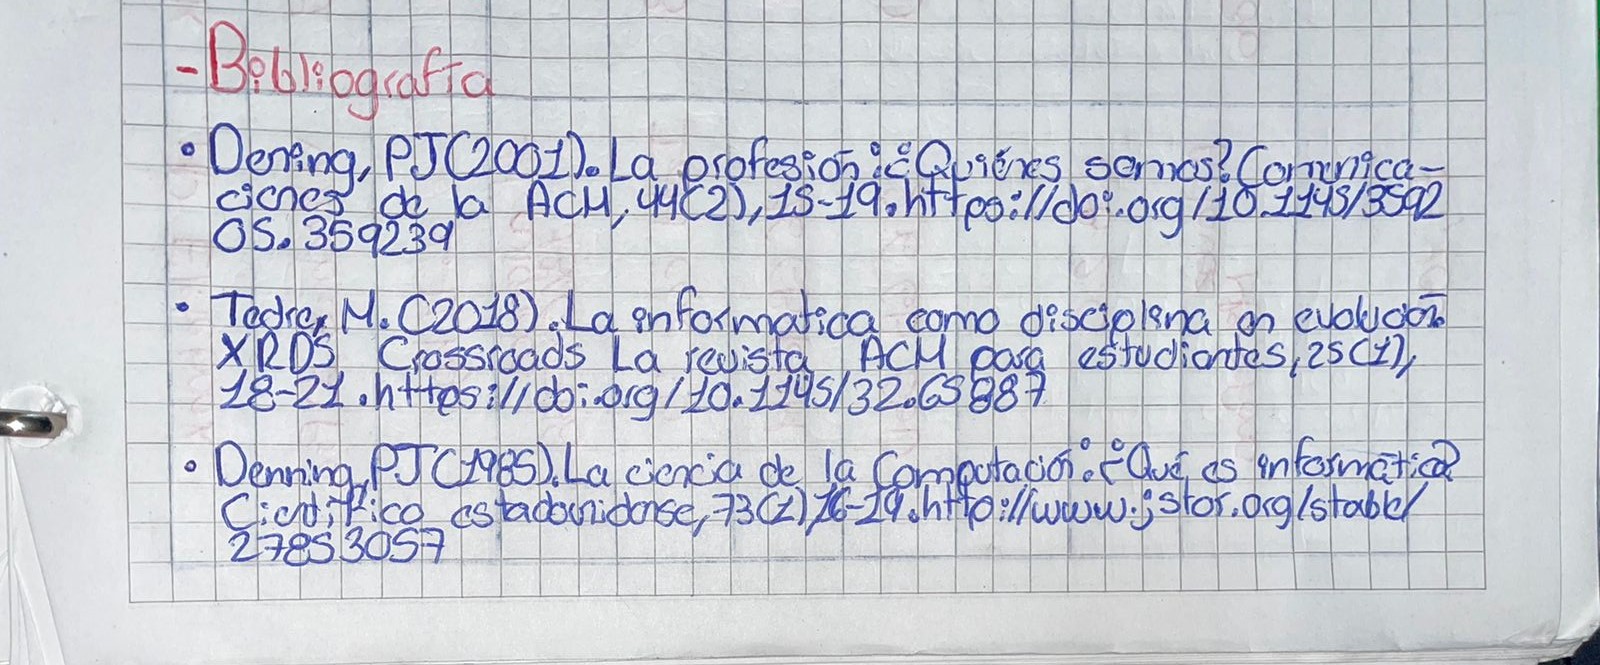 - Bibliografía
• Dening, PJ (2001). La profesión: ¿Quiénes somos? Comunica-
ciones de la ACM, 44(2), 15-19. https://doi.org/10.1145/3592
05.359239
• Tedre, M. (2018). La informatica como disciplina en evolución.
XRDS Crossroads La revista ACM para estudiantes, 25(1),
18-21. https://doi.org/10.1145/32.65887
• Denning, PJ (1985). La ciencia de la Computación: ¿Qué es informática?
Científico estadounidense, 73(1) 16-19. http://www.jstor.org/stable/
27853057